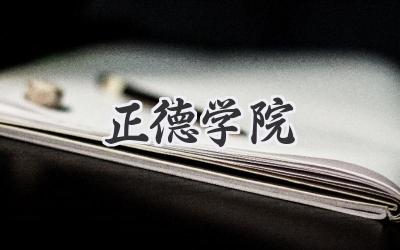 正德学院